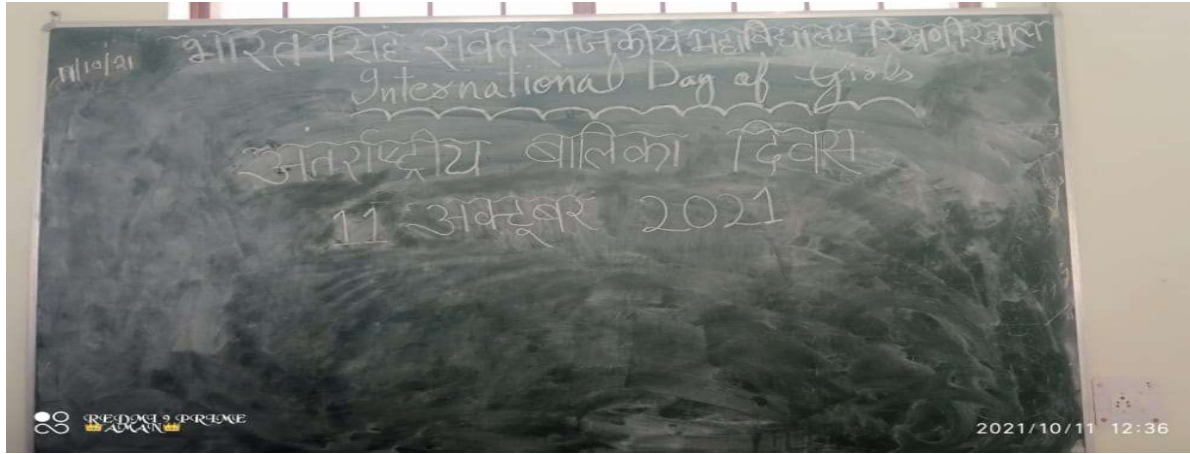 11/10/21
भारत सिंह रावत राजकीय महाविद्यालय रिखणीखाल
International Day of Girls
अंतर्राष्ट्रीय बालिका दिवस
11 अक्टूबर 2021
REDMI 9 PRIME
AMAN
2021/10/11 12:36